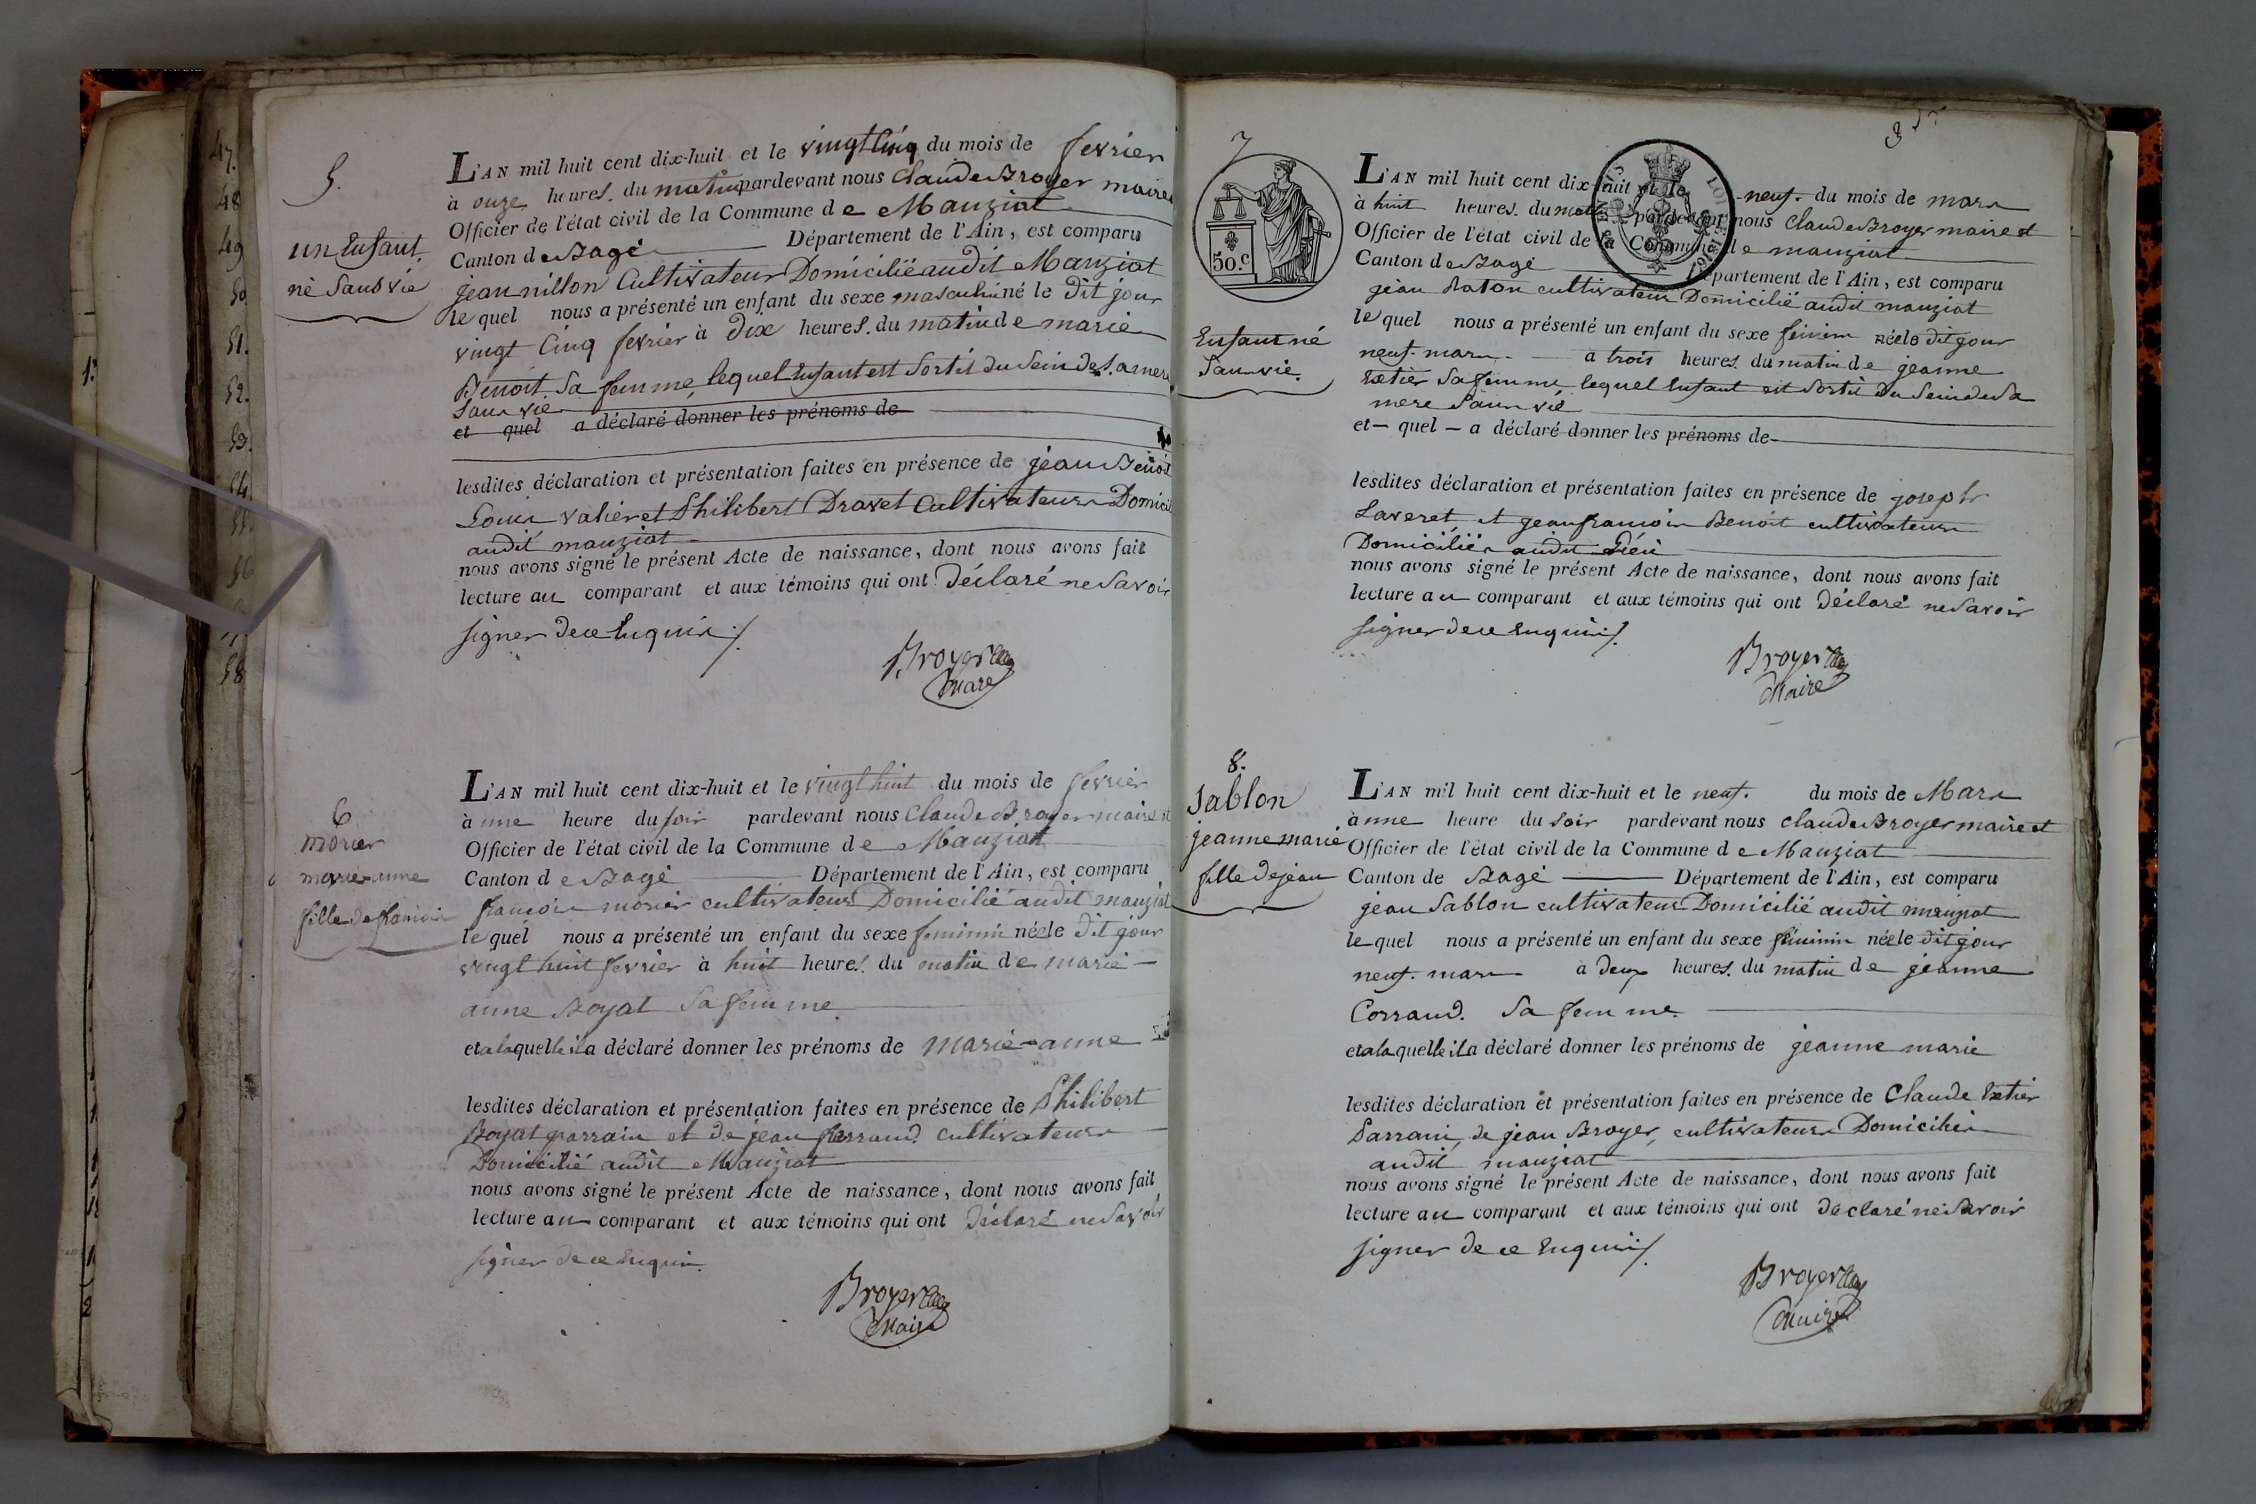 47.
48
49
50
51.
52.
53.
54.
55.
56
58
5.
un Enfant
né Sans vie
L'AN mil huit cent dix-huit et le vingt Cinq du mois de fevrier
à onze heures du matin pardevant nous Claude Broyer maire
Officier de l'état civil de la Commune de Manziat
Canton de Bagé Département de l'Ain, est comparu
jean nillon Cultivateur Domicilié audit Manziat
lequel nous a présenté un enfant du sexe masculin né le Dit jour
vingt Cinq fevrier à Dix heures du matin de marie
Benoit Sa femme, lequel Enfant est Sorti du Sein de Sa mere
Sans vie
et quel a déclaré donner les prénoms de
lesdites déclaration et présentation faites en présence de jean Benoit
Louis valier et Philibert Dravet Cultivateurs Domicil
audit manziat
nous avons signé le présent Acte de naissance, dont nous avons fait
lecture au comparant et aux témoins qui ont Déclaré ne Savoir
signer de ce Enquis ./.
Broyer
Maire
6
morier
marie-anne
fille de francois
L'AN mil huit cent dix-huit et le vingt huit du mois de fevrier
à une heure du soir pardevant nous Claude Broyer maire et
Officier de l'état civil de la Commune de Manziat
Canton de Bagé Département de l'Ain, est comparu
francois morier cultivateur Domicilié audit manziat
lequel nous a présenté un enfant du sexe feminin née le Dit jour
vingt huit fevrier à huit heures du matin de marie
anne Boyat Sa femme
et a laquelle il a déclaré donner les prénoms de marie-anne
lesdites déclaration et présentation faites en présence de Philibert
Boyat parrain et de jean ferrand cultivateurs
Domicilié audit Manziat
nous avons signé le présent Acte de naissance, dont nous avons fait
lecture au comparant et aux témoins qui ont Déclaré ne Savoir
signer de ce Enquis.
Broyer
Maire
7
50.c
Enfant né
Sans vie.
L'AN mil huit cent dix-huit et le neuf du mois de mars
à huit heures du matin pardevant nous Claude Broyer maire et
Officier de l'état civil de la Commune de manziat
Canton de Bagé Département de l'Ain, est comparu
jean Raton cultivateur Domicilié audit manziat
lequel nous a présenté un enfant du sexe féminin née le dit jour
neuf mars à trois heures du matin de jeanne
Extier Sa femme, lequel Enfant est Sorti du Sein de Sa
mere Sans vie
et quel a déclaré donner les prénoms de
lesdites déclaration et présentation faites en présence de joseph
Laveret et jean francois Benoit cultivateurs
Domiciliés audit Lieu
nous avons signé le présent Acte de naissance, dont nous avons fait
lecture au comparant et aux témoins qui ont Déclaré ne Savoir
signer de ce Enquis ./.
Broyer
Maire
8.
Sablon
jeanne marie
fille de jean
L'AN mil huit cent dix-huit et le neuf du mois de Mars
à une heure du soir pardevant nous Claude Broyer maire et
Officier de l'état civil de la Commune de Manziat
Canton de Bagé Département de l'Ain, est comparu
jean Sablon cultivateur Domicilié audit manziat
lequel nous a présenté un enfant du sexe féminin née le dit jour
neuf mars à deux heures du matin de jeanne
Corrand Sa femme
et a laquelle il a déclaré donner les prénoms de jeanne marie
lesdites déclaration et présentation faites en présence de Claude Extier
Parrain, de jean Broyer, cultivateurs Domiciliés
audit manziat
nous avons signé le présent Acte de naissance, dont nous avons fait
lecture au comparant et aux témoins qui ont declaré ne Savoir
signer de ce Enquis ./.
Broyer
Maire